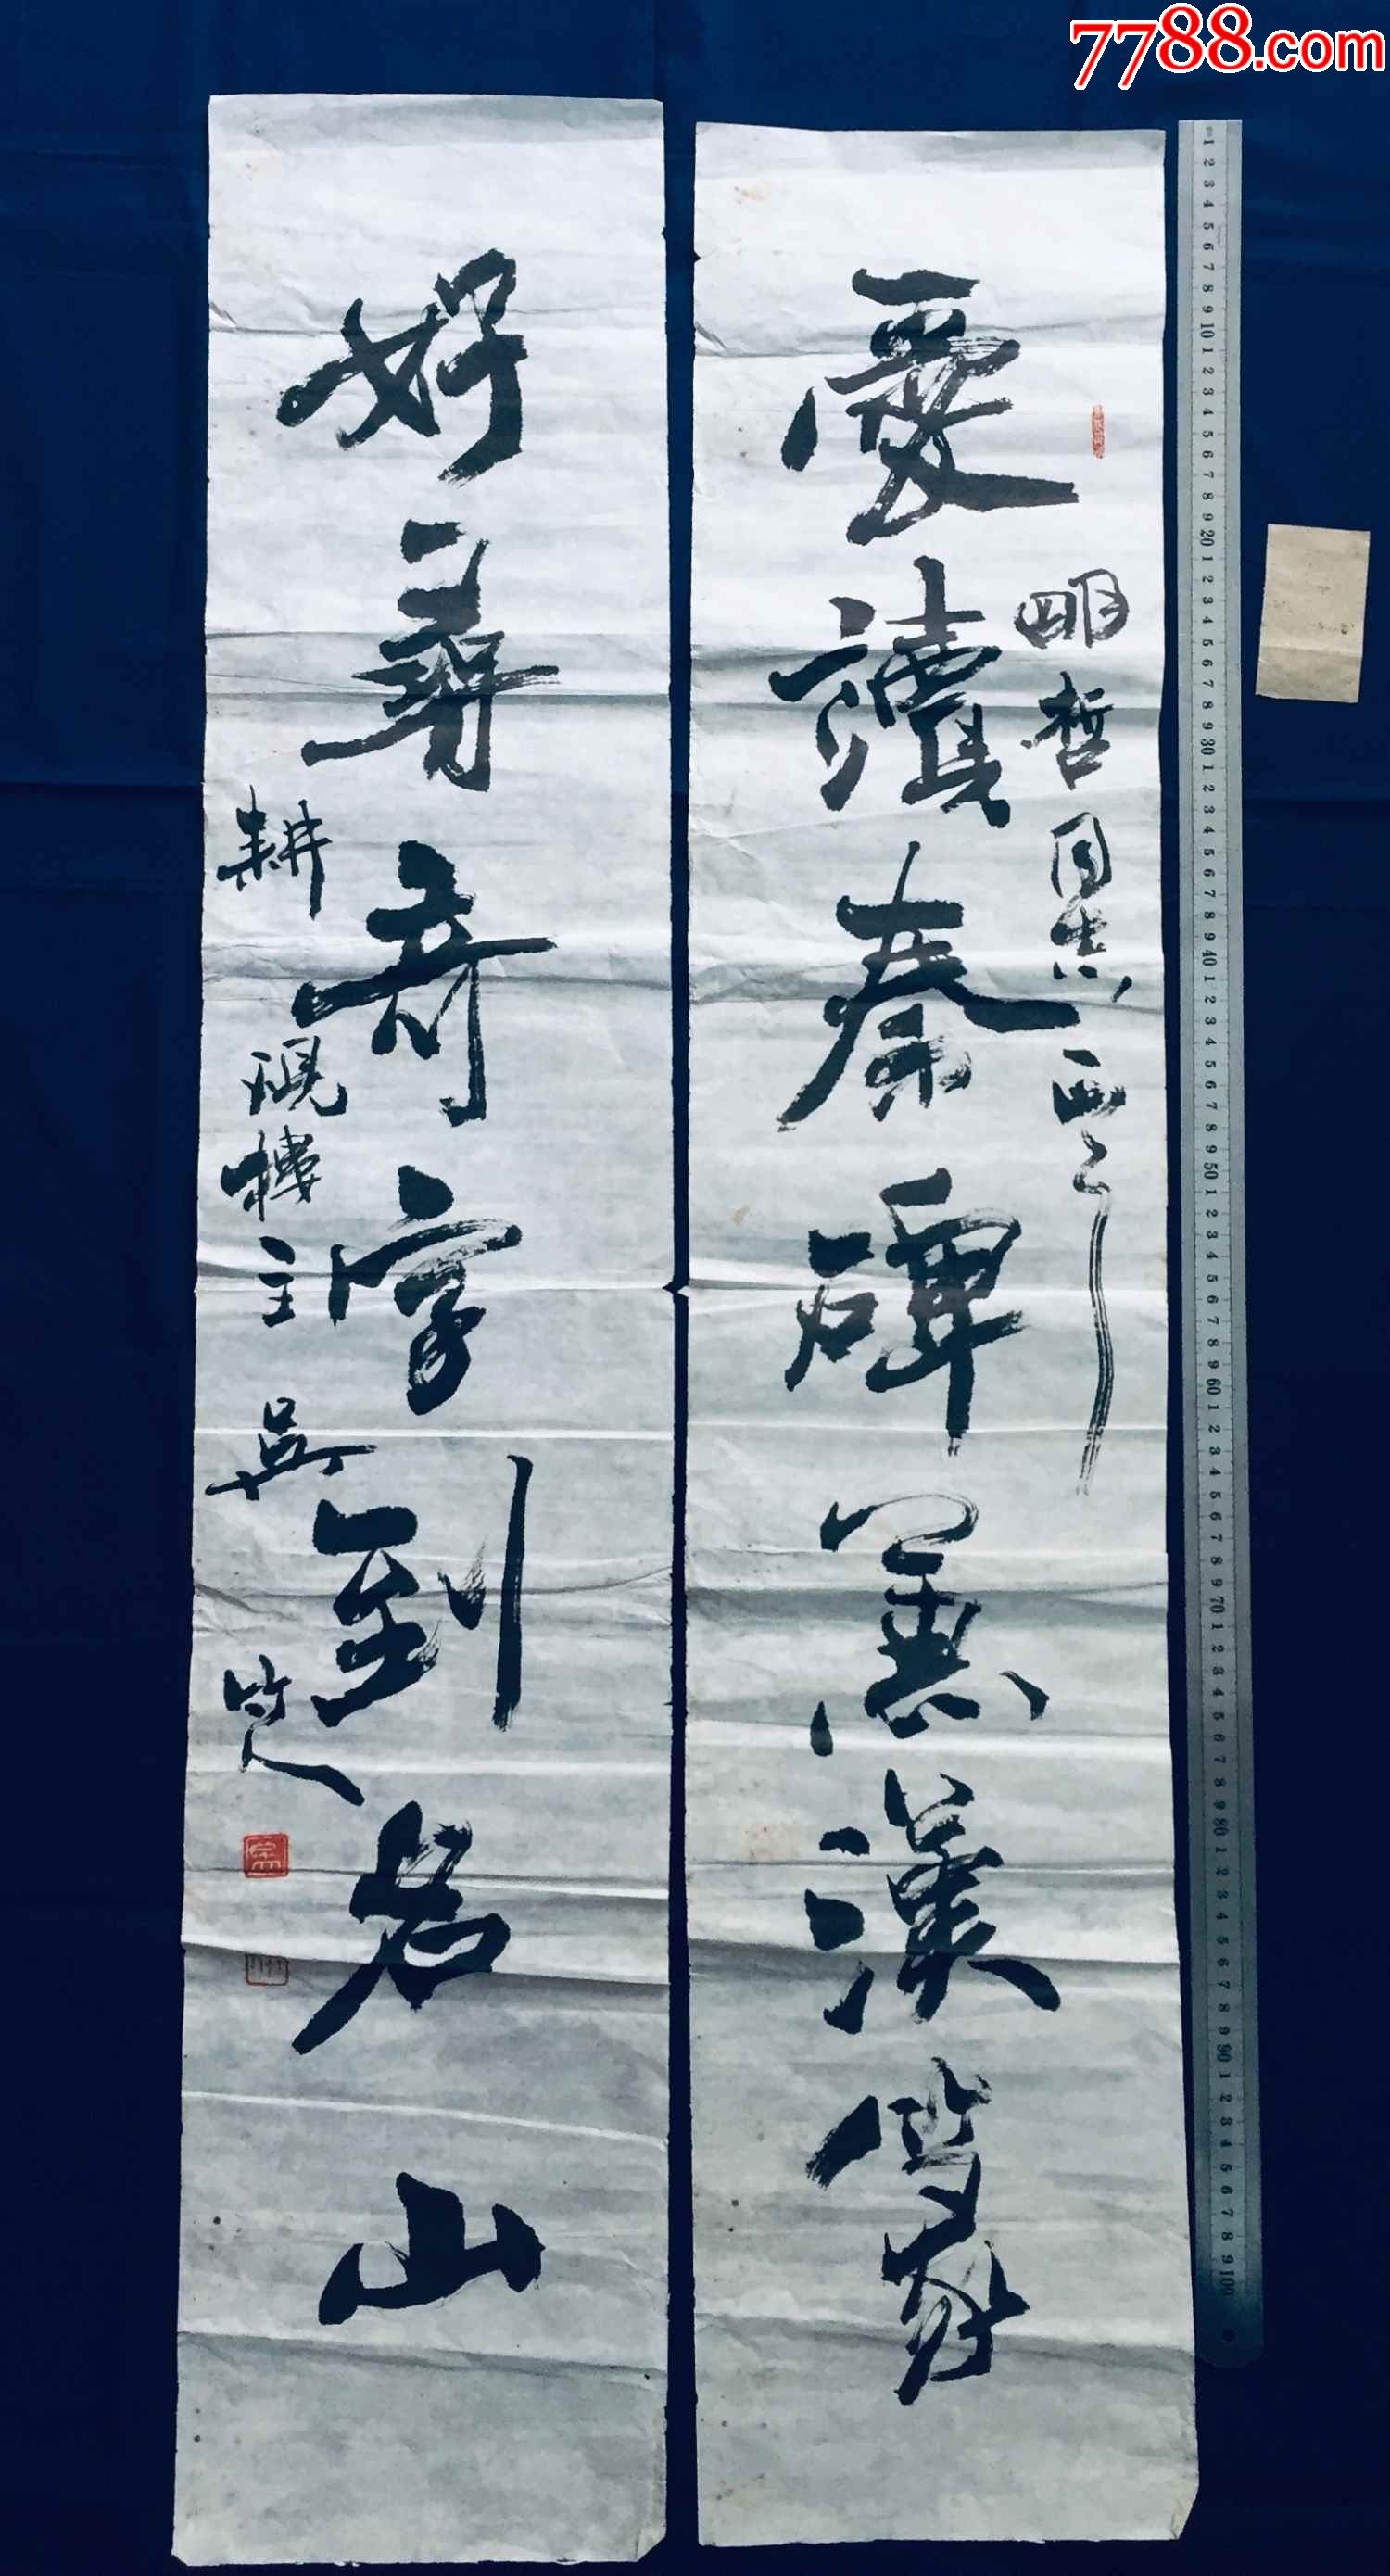 7788.com
愛讀秦碑兼漢篆
明哲同志正之
好尋奇字到名山
耕硯樓主吳